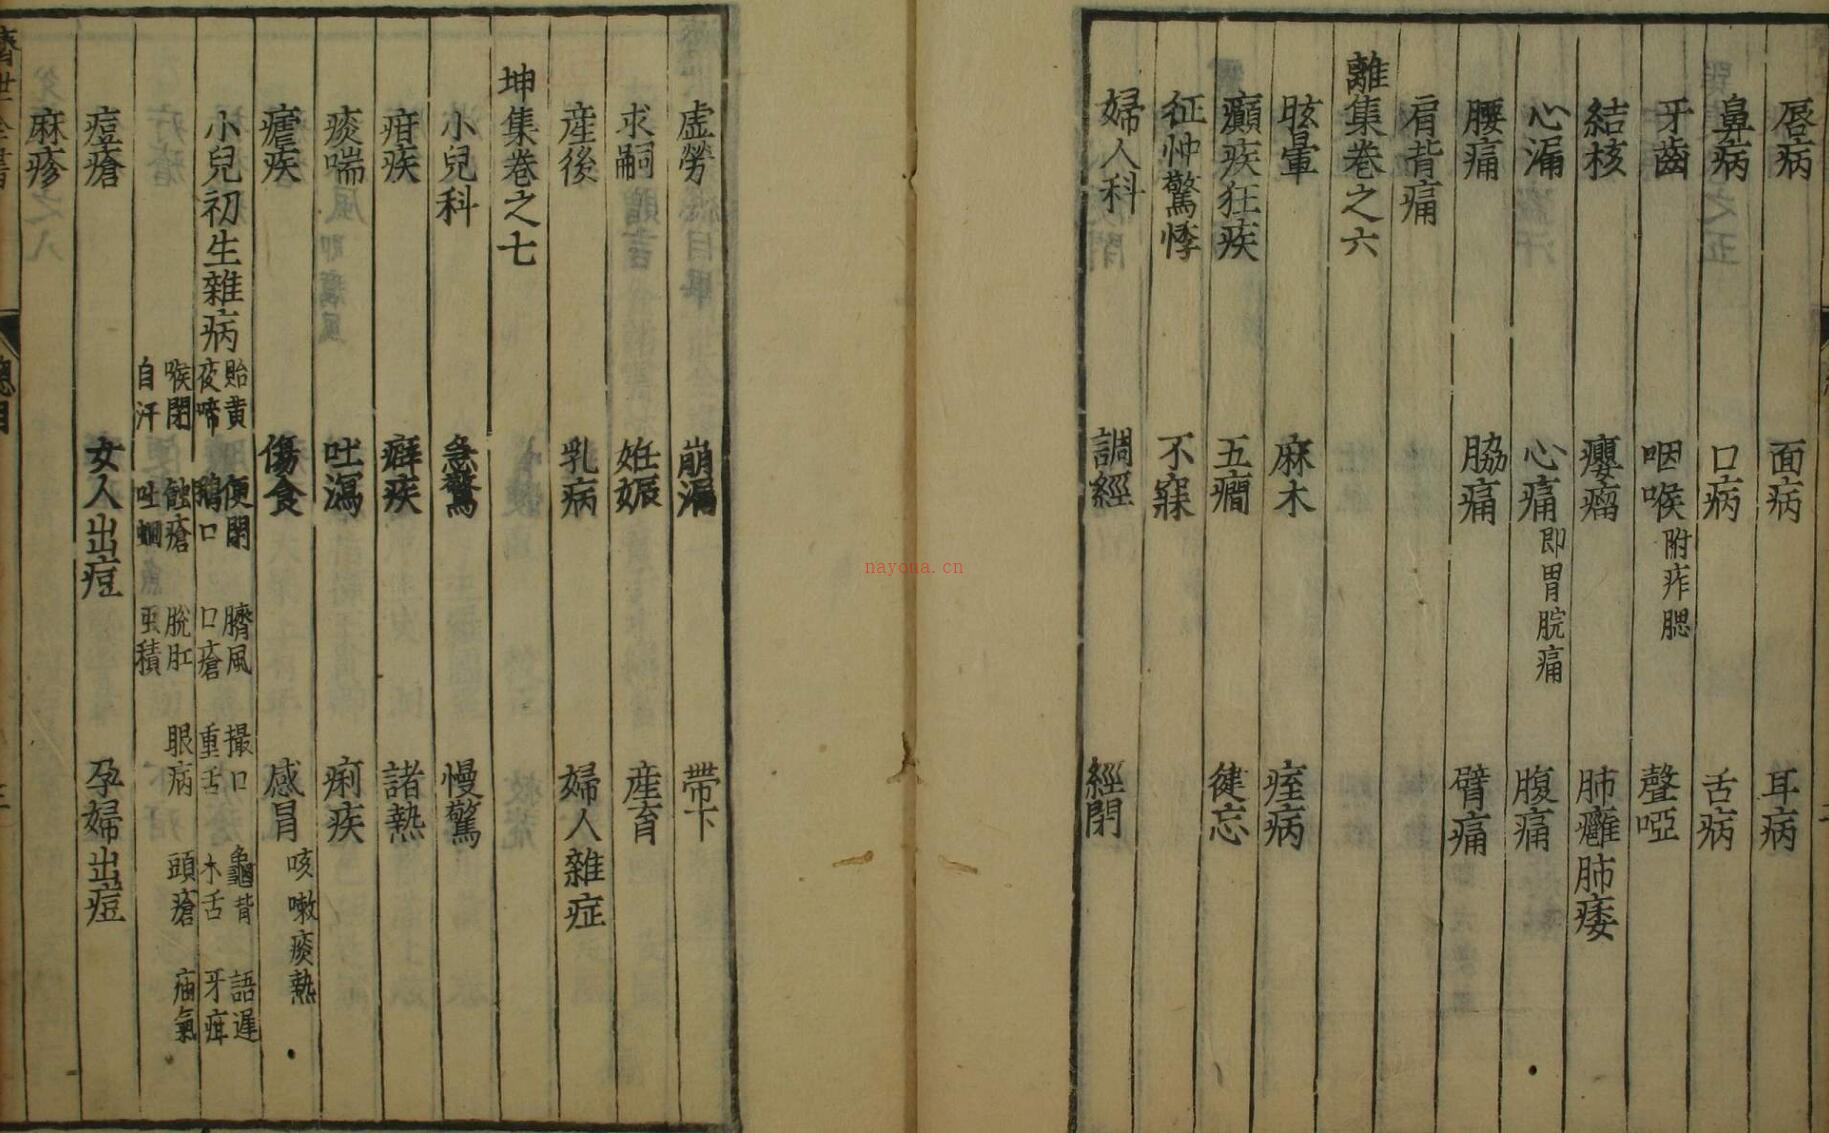 唇病 面病 耳病
鼻病 口病 舌病
牙齒 咽喉附痄腮 聲啞
結核 癭瘤 肺癰肺痿
心漏 心痛即胃脘痛 腹痛
腰痛 脇痛 臂痛
肩背痛
離集卷之六
眩暈 麻木 痓病
癲疾狂疾 五癇 健忘
怔忡驚悸 不寐
婦人科 調經 經閉
虛勞 崩漏 帶下
求嗣 妊娠 產育
産後 乳病 婦人雜症
坤集卷之七
小兒科 急驚 慢驚
疳疾 癖疾 諸熱
痰喘 吐瀉 痢疾
瘧疾 傷食 感冒咳嗽痰熱
小兒初生雜病 胎黄 便閉 臍風 撮口 龜背 語遲
夜啼 鵝口 口瘡 重舌 木舌 牙疳
喉閉 蝕瘡 脫肛 眼病 頭瘡 疝氣
自汗 吐蛔 虫積
痘瘡 女人出痘 孕婦出痘
麻疹
濟世全書 總目
nayona.cn